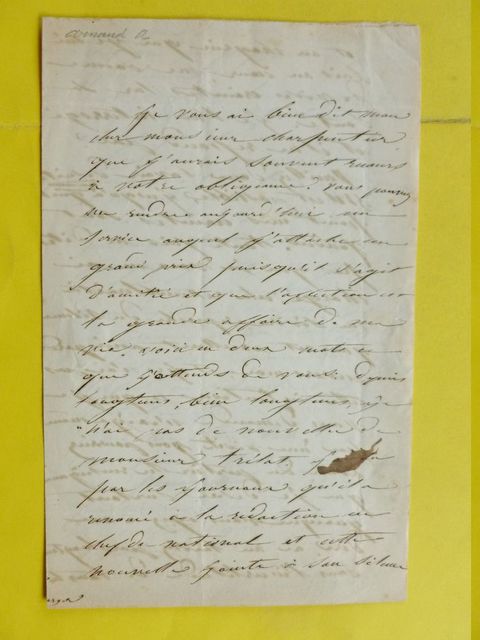 armand a
je vous ai bien dit mon
cher monsieur charpentier
que j'aurais souvent recours
à votre obligeance. vous pouvez
me rendre aujourd'hui un
service auquel j'attache un
grand prix puisqu'il s'agit
d'amitié et que l'affection est
la grande affaire de ma
vie. voici en deux mots ce
que j'attends de vous. depuis
longtems, bien longtems, je
n'ai pas de nouvelle de
monsieur trélat
par les journaux qu'il a
renoncé à la rédaction en
chef du national et cette
nouvelle jointe à son silence